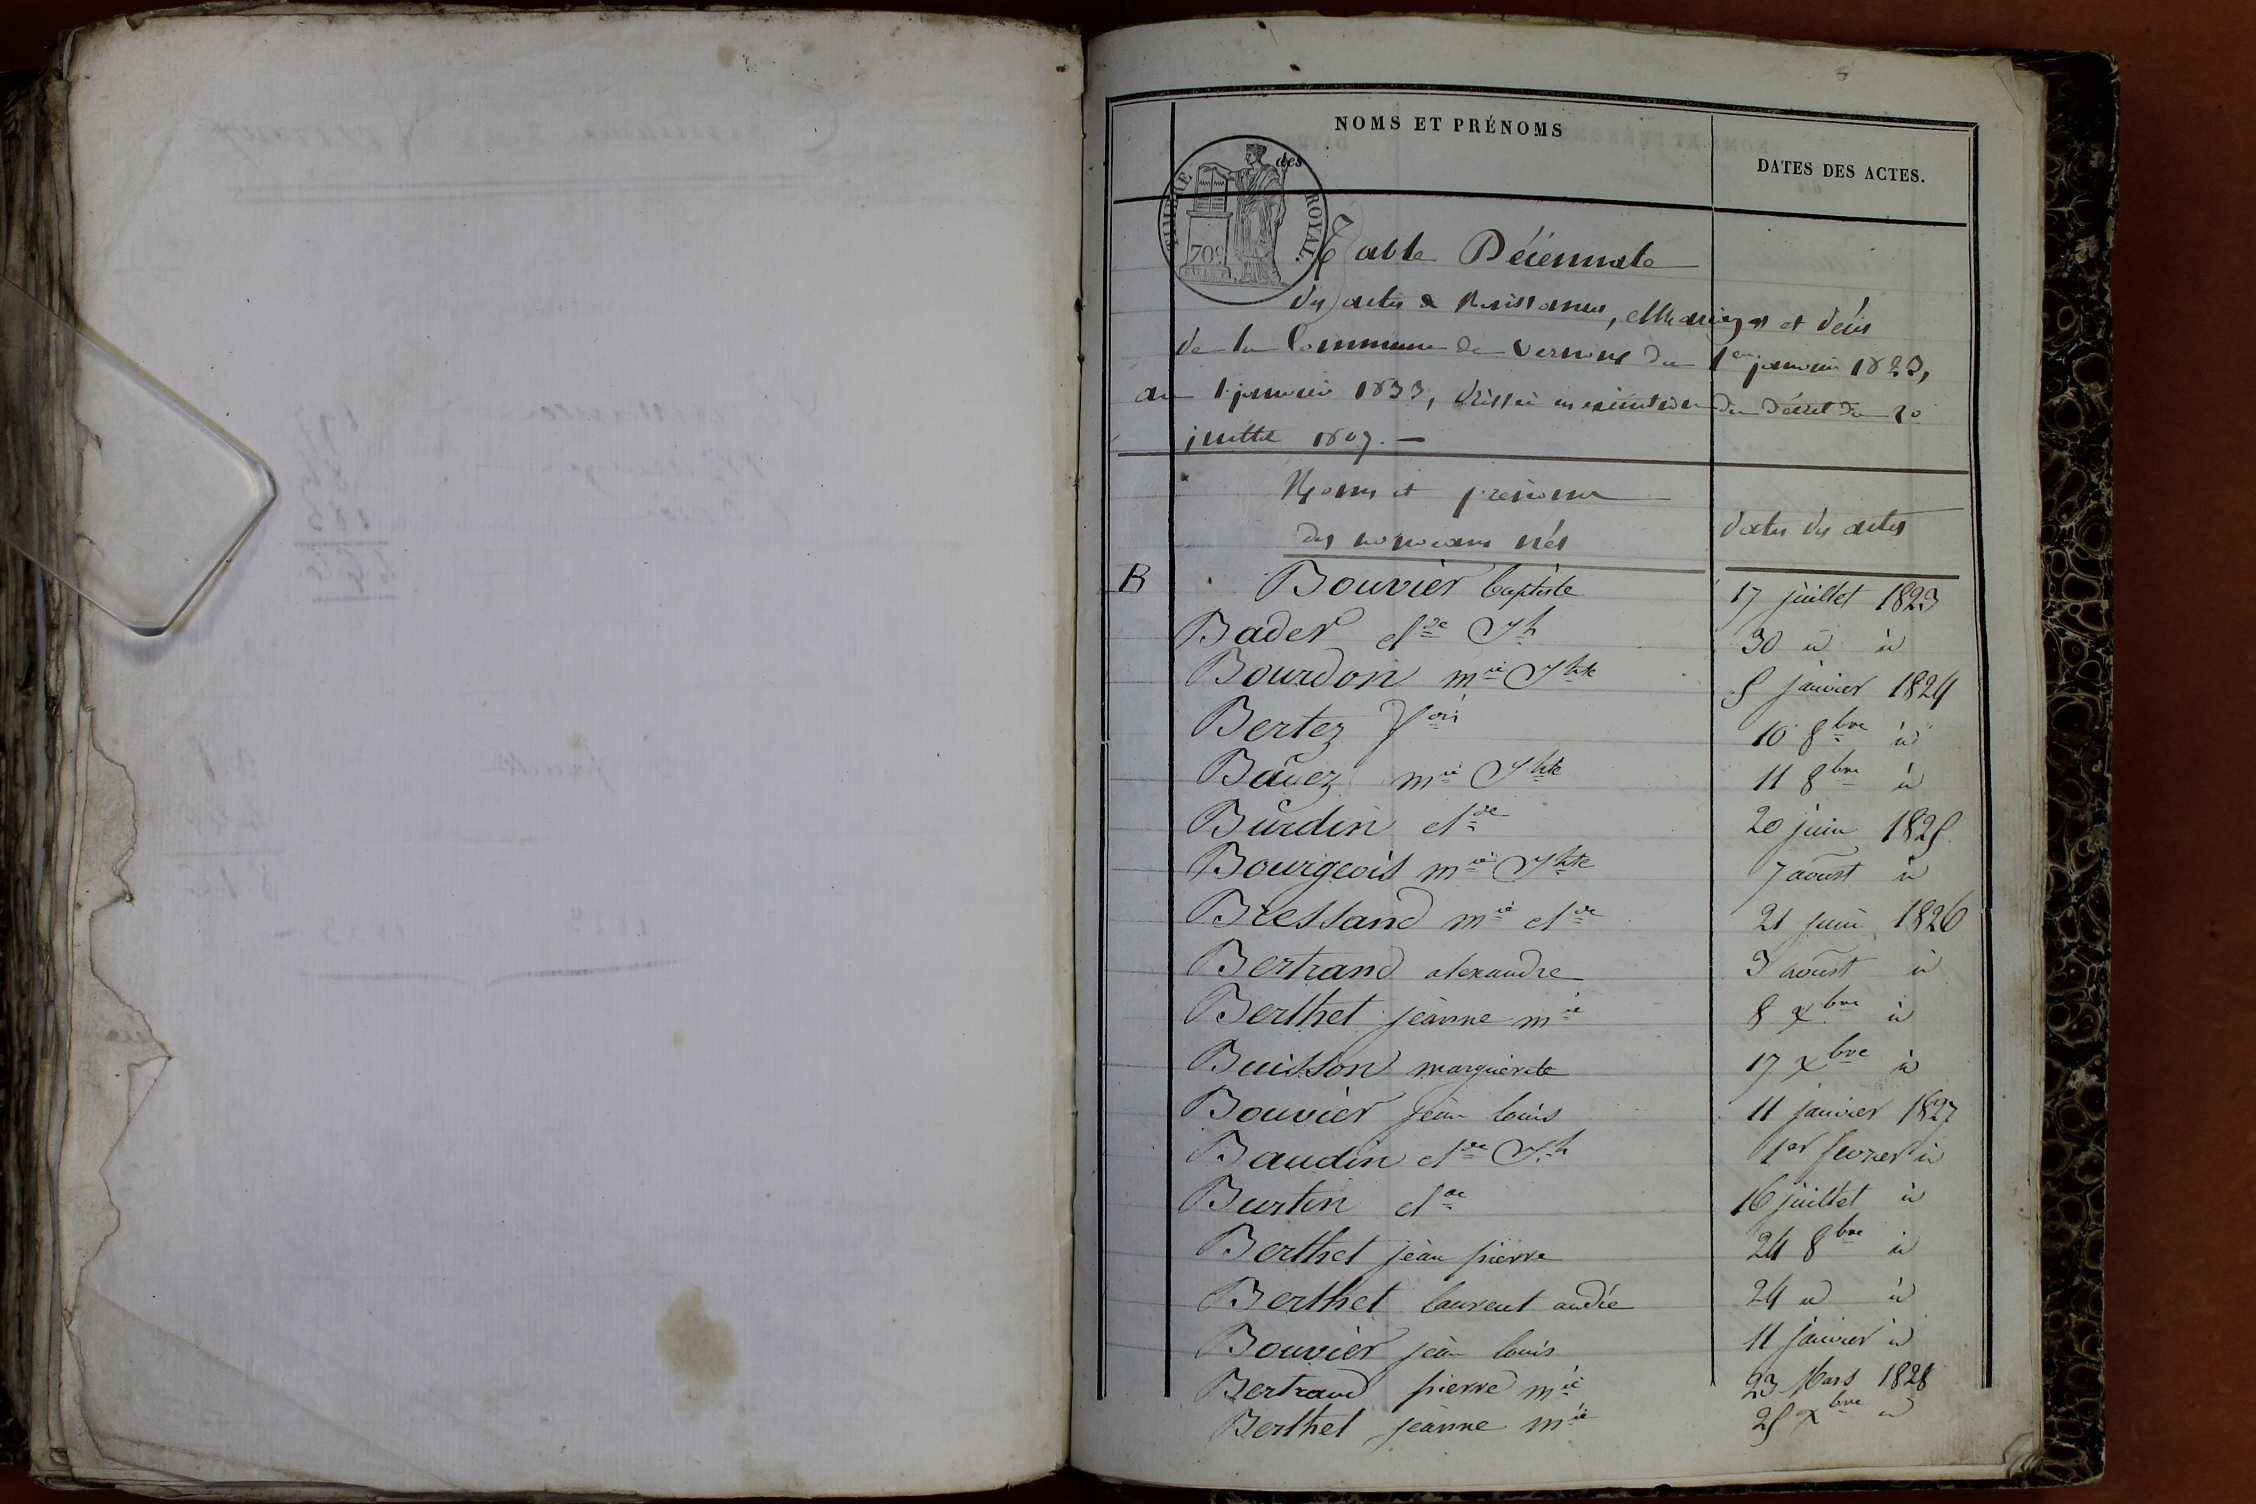 NOMS ET PRÉNOMS
des
DATES DES ACTES.
TIMBRE ROYAL.
70c
Table Décennale
des actes de Naissances, Mariages et décès
de la Commune de vernoux du 1er janvier 1823,
au 1 janvier 1833, dressée en exécution du décret du 20
juillet 1807. —
Noms et prénoms
des nouveaux nés
dates des actes
B Bouvier baptiste 17 juillet 1823
Bader cl de Jh 30 id id
Bourdon mie Jhte 5 janvier 1824
Bertez fois 10 8bre id
Bavez mie Jhte 11 8bre id
Burdin clde 20 juin 1825
Bourgeois mie Jhte 7 aoust id
Bressand mie clde 21 juin 1826
Bertrand alexandre 3 aoust id
Berthet jeanne mie 8 xbre id
Buisson marguerite 17 xbre id
Bouvier jean louis 11 janvier 1827
Baudin clde Jh 1er fevrier id
Burtin clde 16 juillet id
Berthet jean pierre 24 8bre id
Berthet laurent andré 24 id id
Bouvier jean louis 11 janvier id
Bertrand pierre mie 23 Mars 1828
Berthet jeanne mie 25 xbre id